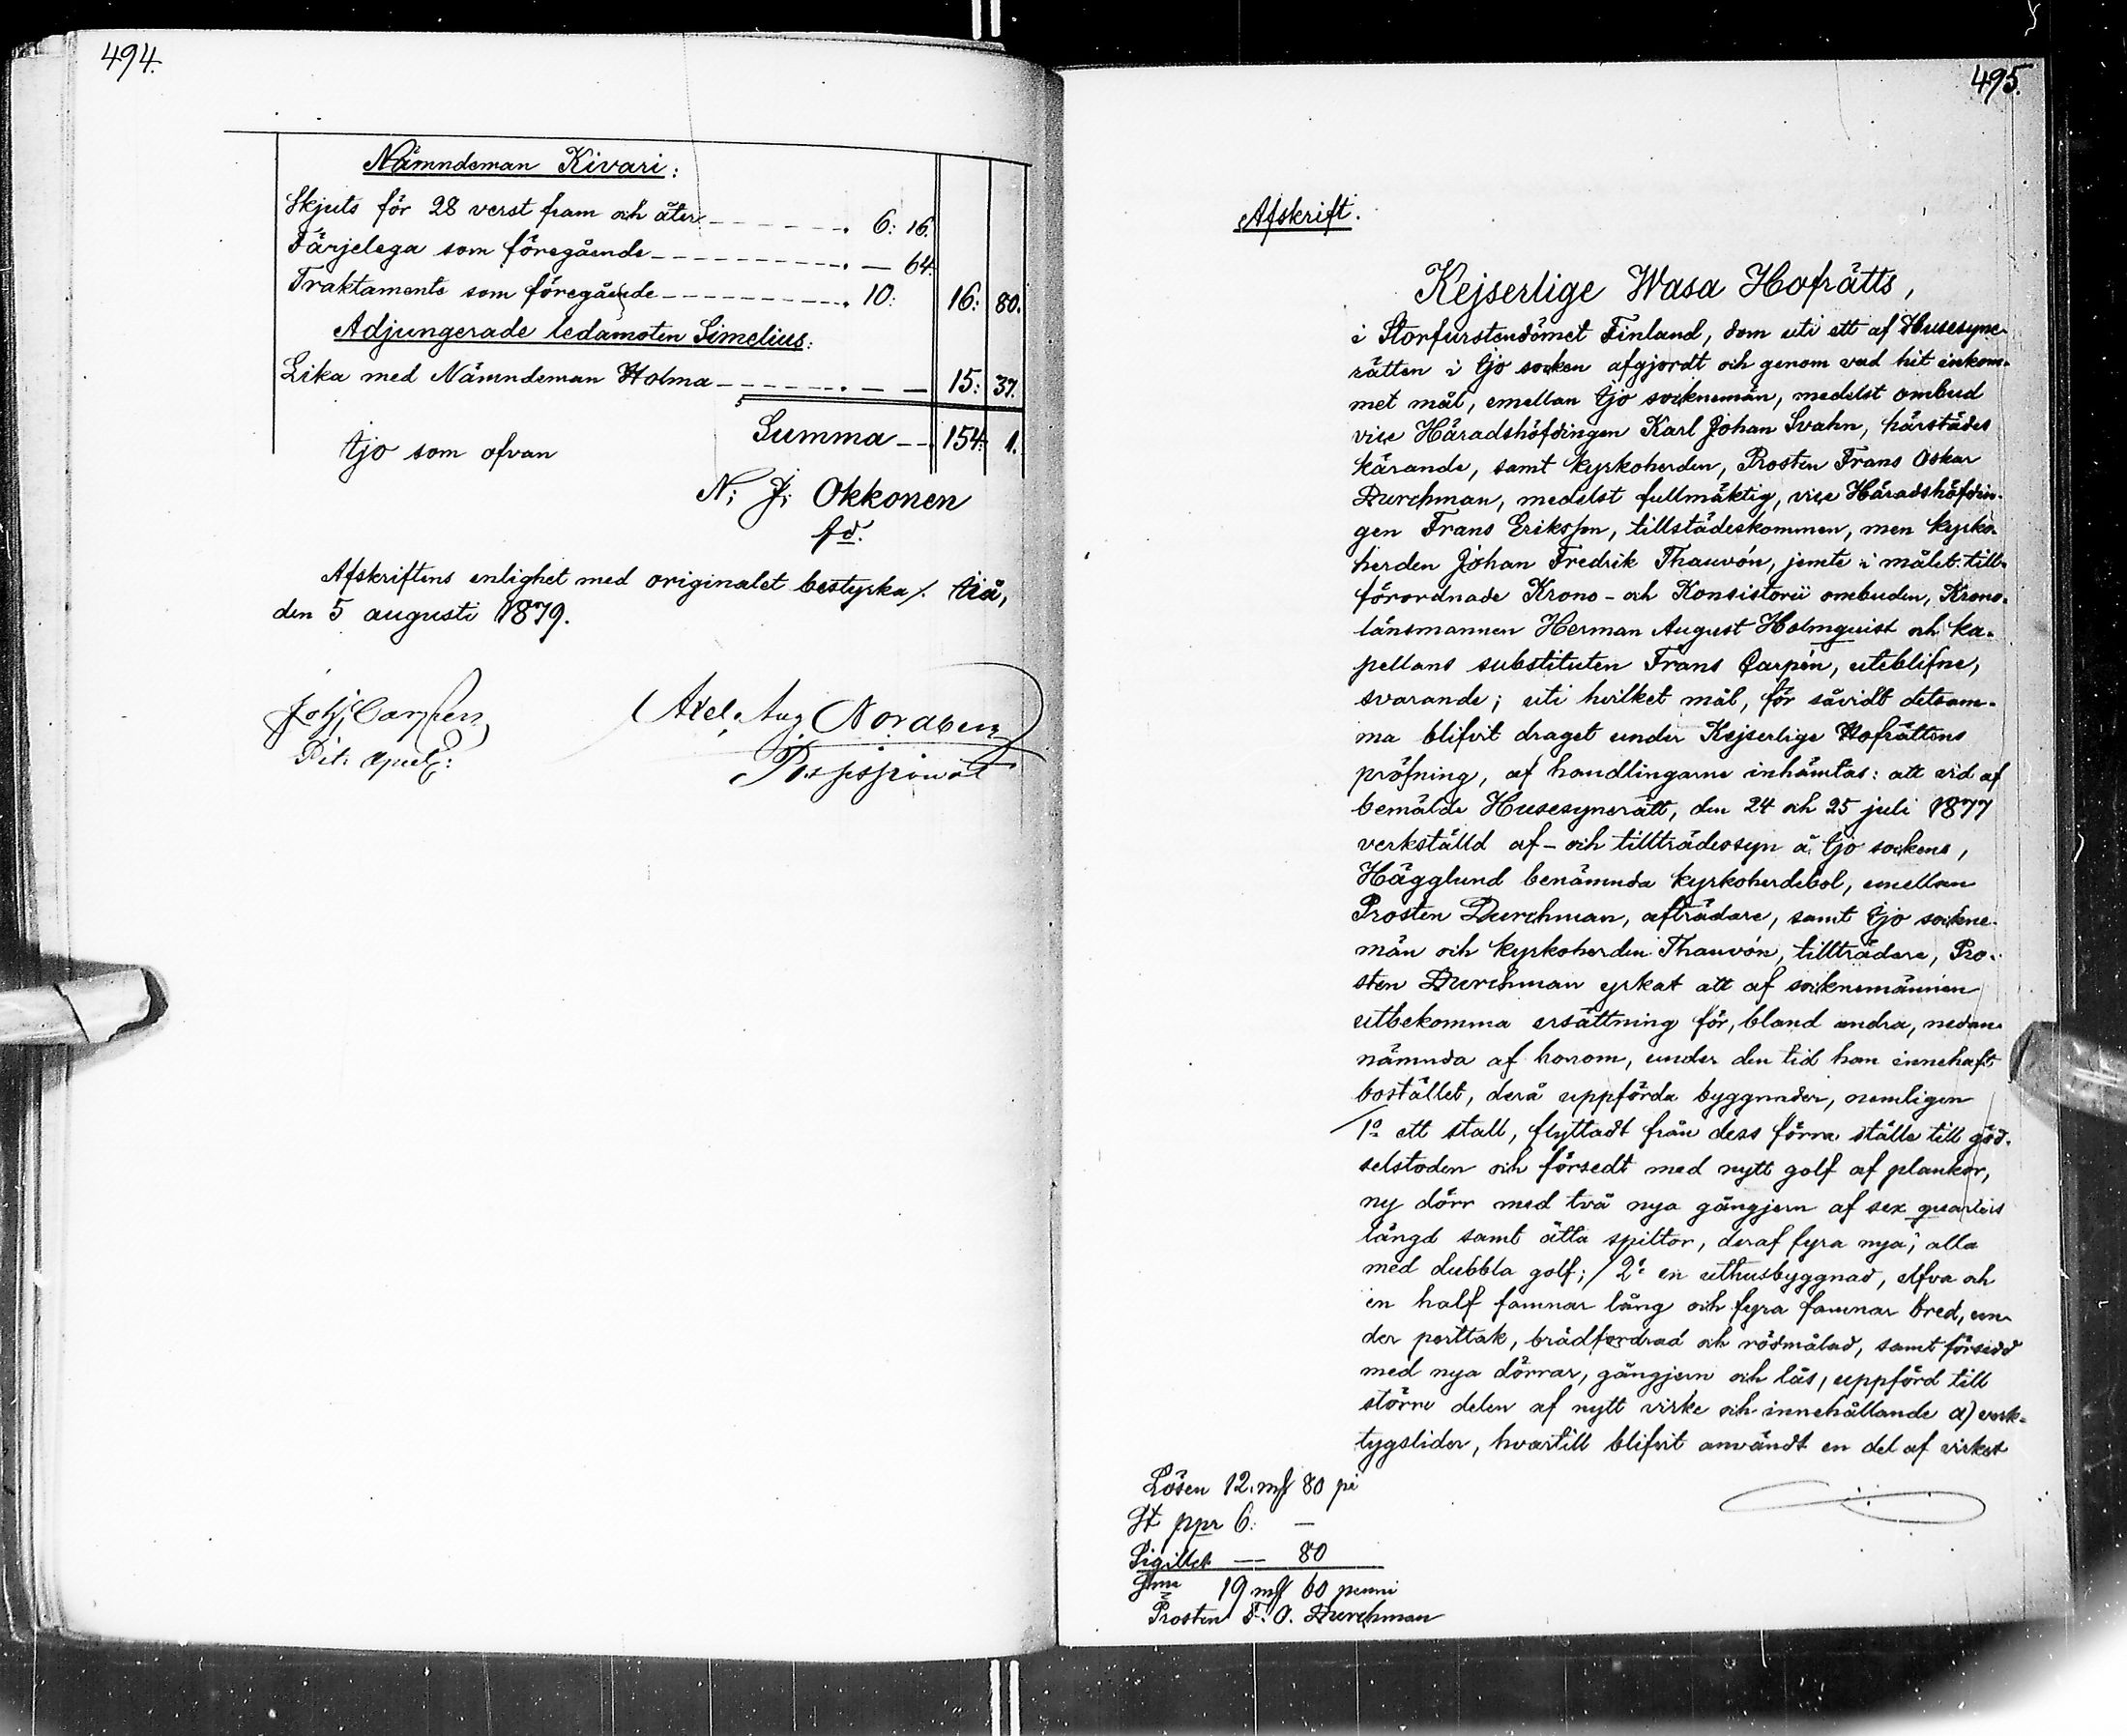 494.
Nämndeman Kivari:
Skjuts för 28 verst fram och åter - - - - - - . 6: 16.
Färjelega som föregående - - - - - - - . — 64.
Traktamente som föregående - - - - - - - . 10: 16: 80.
Adjungerade ledamoten Simelius:
Lika med Nämndeman Holma - - - - - . — — 15: 37.
Summa - - 154: 1.
Ijo som ofvan
N: J: Okkonen
fd.
Afskriftens enlighet med originalet bestyrka /. Iiå,
den 5 augusti 1879.
Joh: Carpen
Axel Aug Norabeng
495.
Afskrift.
Kejserlige Wasa Hofrätts,
i Storfurstendömet Finland, dom uti ett af Husesyne-
rätten i Ijo socken afgjordt och genom vad hit inkom-
met mål, emellan Ijo socknemän, medelst ombud
vice Häradshöfdingen Karl Johan Svahn, härstädes
kärande, samt kyrkoherden, Prosten Frans Oskar
Durchman, medelst fullmäktig, vice Häradshöfdin-
gen Frans Eriksson, tillstädeskommen, men kyrko-
herden Johan Fredrik Thauvón, jemte i målet till-
förordnade Krono- och Konsistorii ombuden, Krono-
länsmannen Herman August Holmquist och ka-
pellans substituten Frans Carpén, uteblifne,
svarande; uti hvilket mål, för såvidt detsam-
ma blifvit draget under Kejserlige Hofrättens
pröfning, af handlingarne inhämtas: att vid af
bemälde Husesynerätt, den 24 och 25 juli 1877
verkställd af- och tillträdessyn å Ijo sockens,
Hägglund benämnda kyrkoherdebol, emellan
Prosten Durchman, afträdare, samt Ijo sockne-
män och kyrkoherden Thauvón, tillträdare, Pro-
sten Durchman yrkat att af socknemännen
utbekomma ersättning för, bland andra, nedan-
nämnda af honom, under den tid han innehaft
bostället, derå uppförda byggnader, nemligen
1o ett stall, flyttadt från dess förra ställe till göd-
selstaden och försedt med nytt golf af plankor,
ny dörr med två nya gångjern af sex quarters
längd samt åtta spiltor, deraf fyra nya, alla
med dubbla golf; / 2o en uthusbyggnad, elfva och
en half famnar lång och fyra famnar bred, un-
der perttak, brädfordrad och rödmålad, samt försedd
med nya dörrar, gångjern och lås, uppförd till
större delen af nytt virke och innehållande a) verk-
tygslider, hvartill blifvit användt en del af virket
Lösen 12. mf 80 pi
St ppr 6: —
Sigillet — 80
Sma 19 mf 60 penni
Prosten F. O. Durchman